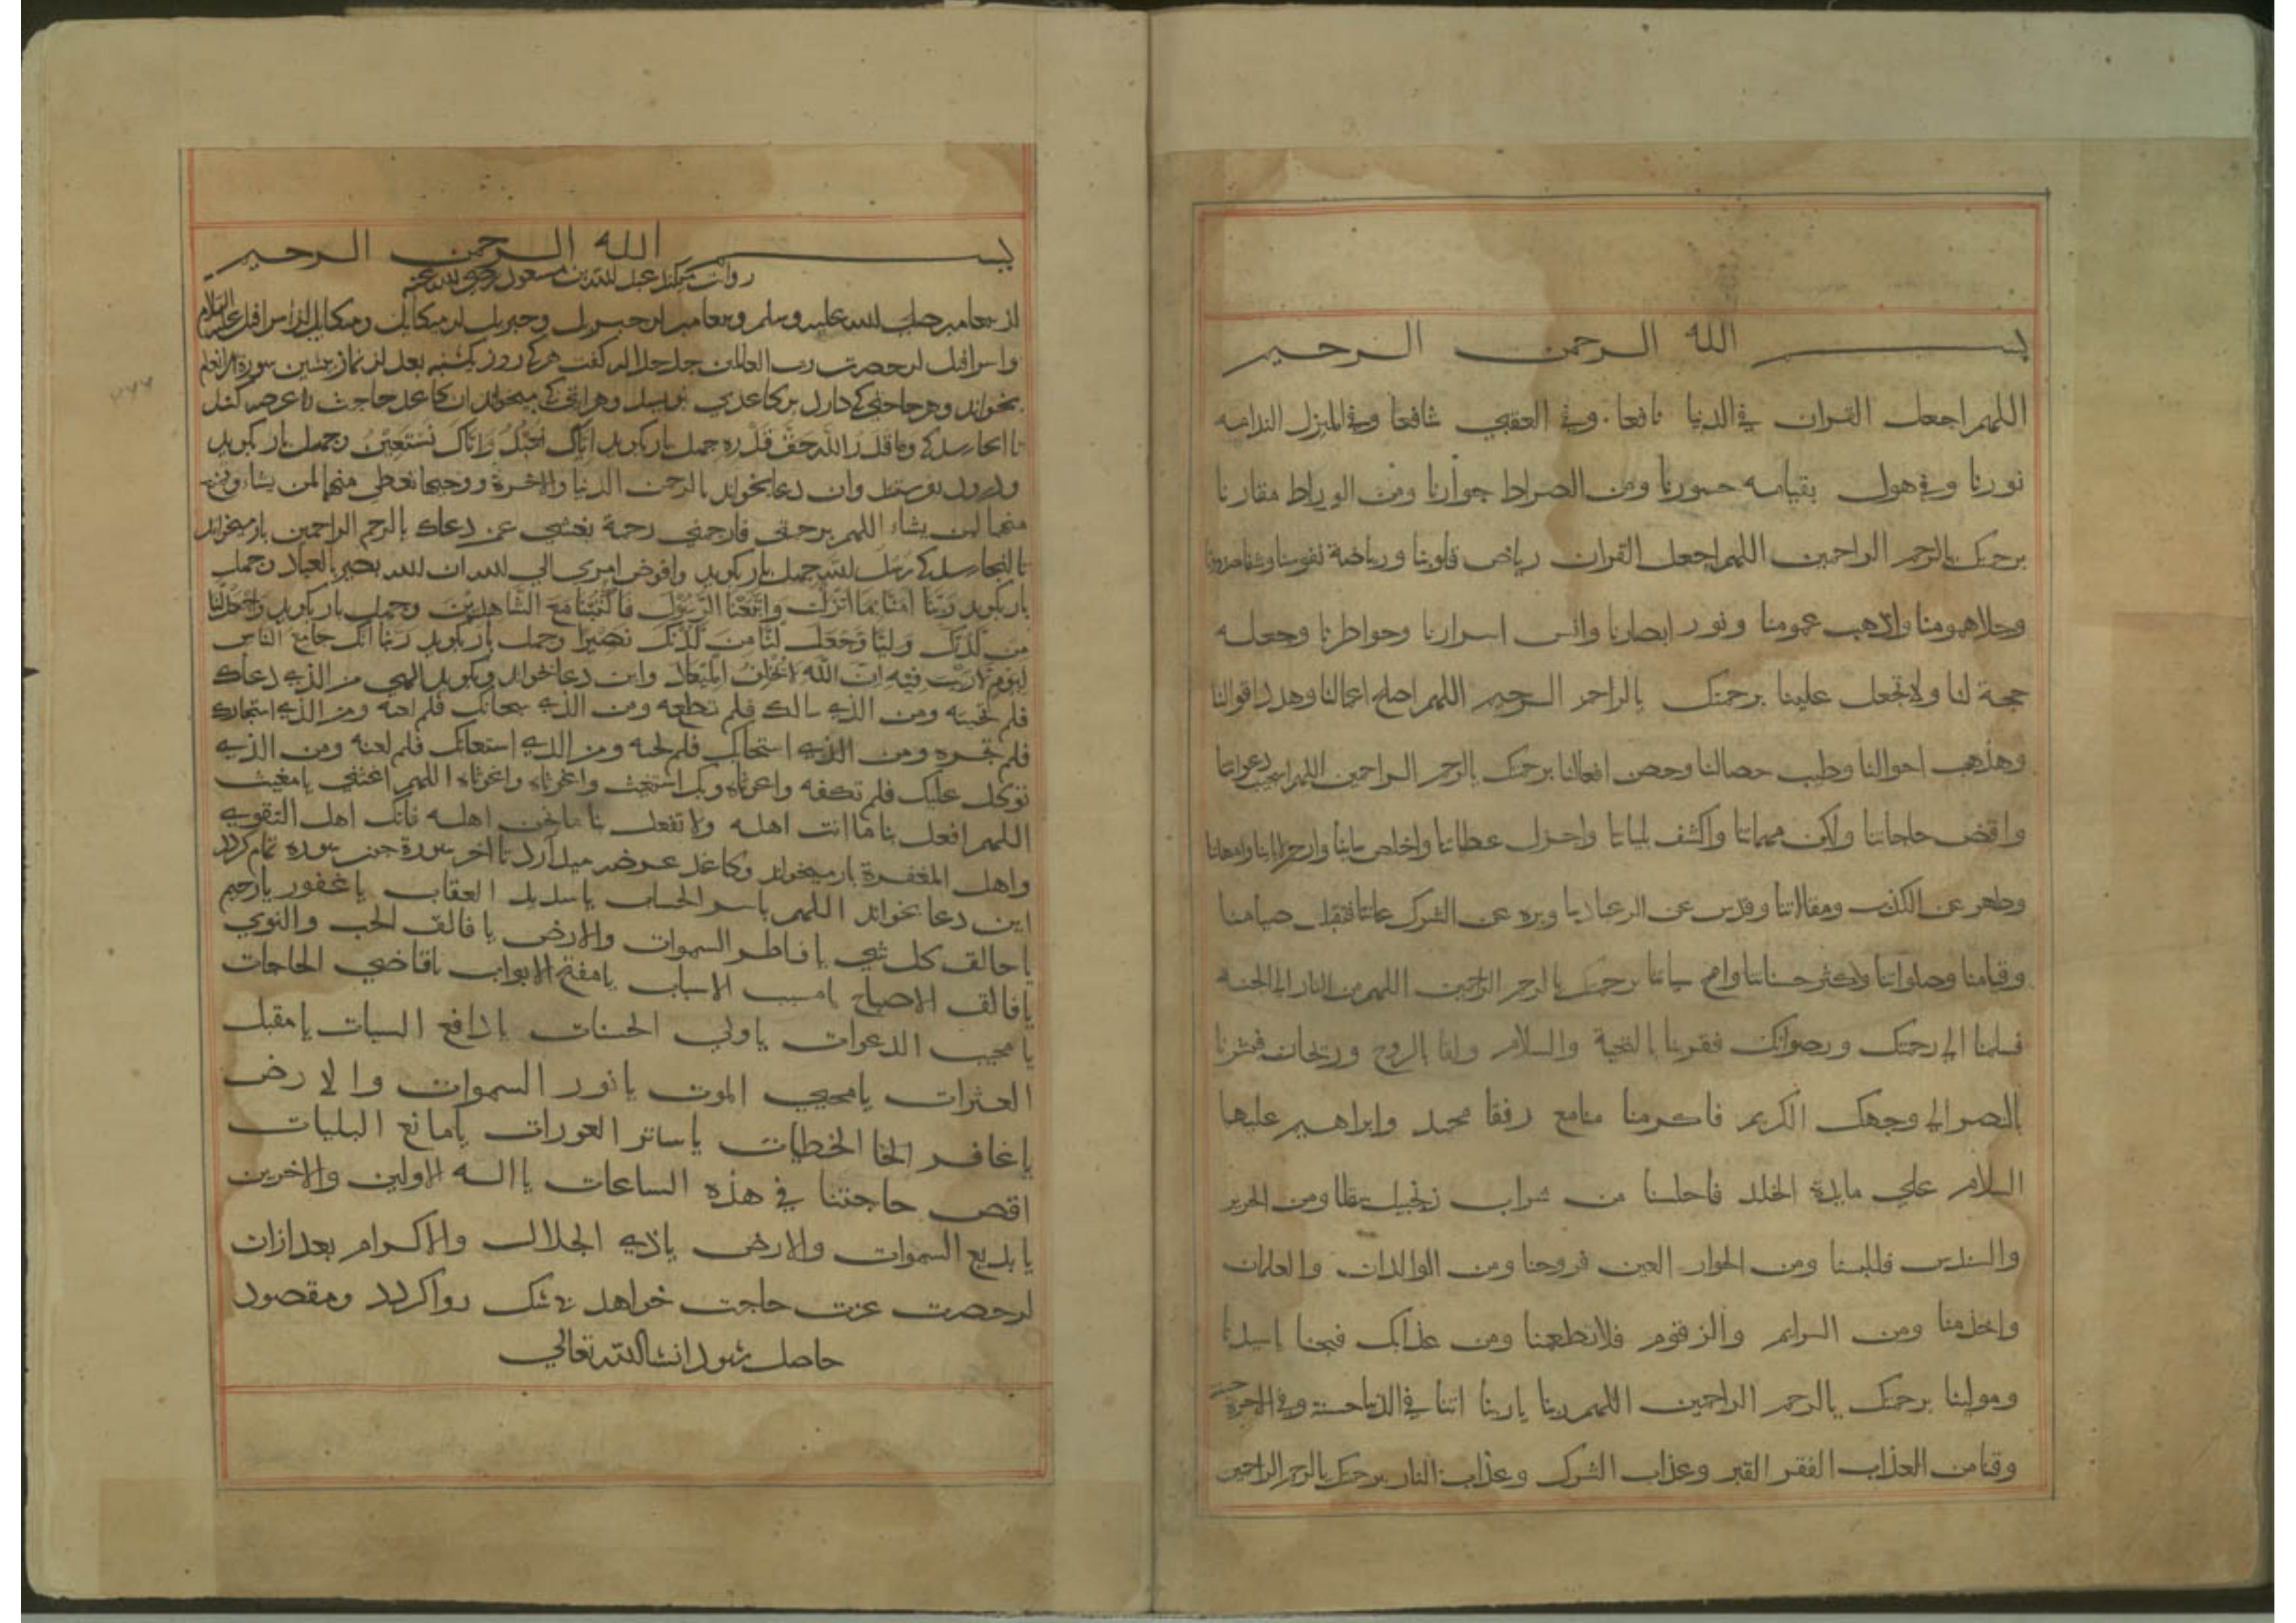 بسم الله الرحمن الرحيم
اللهم اجعل القران في الدنيا نافعا وفي العقبي شافعا وفي المنزل الندامه
نورنا وفي هول بقيامه حسورنا ومن الصراط جوارنا ومن الوراط مقارنا
برحمتك يالرحم الراحمين اللهم اجعل القران رياض قلوبنا ورياضة نفوسنا
وجلاهمومنا والاهب غمومنا ونور ابصارنا وانس اسرارنا وحواطرنا وجعله
حجة لنا ولا تجعل علينا برحمتك يالراحم الرحيم اللهم اصلح اعمالنا وهدد اقوالنا
وهذهب احوالنا وطيب حصالنا وحصن افعالنا برحمتك يالرحم الراحمين اللهم استجب دعواتنا
واقض حاجاتنا واكف مهماتنا واكشف بلياتنا واجزل عطاتنا واخلص
وطهر عن الكذب ومقالاتنا وقدس عن الرعبادنا وبره عن الشرك فتقبل صيامنا
وقيامنا وصلواتنا وكثر حسناتنا وامح سياتنا برحمتك يالرحم الراحمين اللهم من النار الي الجنه
فسلمنا الي رحمتك ورضوانك فقربنا بالتحية والسلام ولقا بالروح وريحان فبشرنا
بالنصر الي وجهك الكريم فاكرمنا منامع رفقا محمد وابراهيم عليها
السلام علي مايدة الخلد فاجلسنا من شراب زنجبيل سقا ومن الحرير
والسندس فللبسنا ومن الحوار العين فزوجنا ومن الوالدات والعلمان
واخدمنا ومن السرايم والزقوم فلا تطعمنا ومن عذابك فنجنا يا سيدنا
ومولينا برحمتك يالرحم الراحمين اللهم ربنا يا ربنا اتنا في الدنيا حسنة وفي الاخرة حسنة
وقنا من العذاب الفقر القبر وعذاب الشرك وعذاب النار برحمتك يالرحم الراحمين
بسم الله الرحمن الرحيم
روايت ميكند عبد الله بن مسعود رضي الله عنه
از پيغامبر صلي الله عليه وسلم وپيغامبر از جبريل وجبريل از ميكايل وميكايل از اسرافيل عليه السلام
واسرافيل از حضرت رب العالمين جل جلاله گفت هر كه روز يكشنبه بعد از نماز پيشين سورة الانعام
بخواند وهر حاجتي كه دارد بر كاغدي نويسد وهر ايتي كه ميخواند ان كاغد حاجت را عرض كند
تا انجا رسد كه وما قدر الله حق قدره چهل بار بگويد اياك نعبد واياك نستعين وچهل بار بگويد
ودرود بفرستد وان دعا بخواند يا رحمن الدنيا والاخرة ورحيمها تعطي منهما لمن يشاء
منهما لمن يشاء اللهم برحمتي فارحمني رحمة بغشي عن دعاك يالرحم الراحمين باز ميخواند
تا انجا رسد كه رسل الله چهل بار بگويد وافوض امري الي الله ان الله بصير بالعباد وچهل
بار بگويد ربنا امنا بما انزلت واتبعنا الرسول فاكتبنا مع الشاهدين وچهل بار بگويد واجعل لنا
من لدنك وليا وجعل لنا من لدنك نصيرا وچهل بار بگويد ربنا انك جامع الناس
ليوم لا ريب فيه ان الله لا يخلف الميعاد واين دعا بخواند وبگويد الهي من الذي دعاك
فلم تجبه ومن الذي سالك فلم تطعه ومن الذي فلم ومن الذي استجارك
فلم تجره ومن الذي استجابك فلم ومن الذي استعانك فلم لعنه ومن الذي
توكل عليك فلم تكفه واغوثاه وبك استغيث واغوثاه واغوثاه اللهم اغثني يا مغيث
اللهم افعل بنا ما انت اهله ولا تفعل بنا ما نحن اهله فانك اهل التقوي
واهل المغفرة باز ميخواند وكاغد عرضه ميدارد تا اخر سورة چون سوره تمام گردد
اين دعا بخواند اللهم يا سر الحساب يا سديد العقاب يا غفور يا رحيم
يا حالق كل شي يا فاطر السموات والارض يا فالق الحب والنوي
يا فالق الاصباح يا مسبب الاسباب يا مفتح الابواب يا قاضي الحاجات
يا مجيب الدعوات يا ولي الحسنات يا دافع السيات يا مقبل
العثرات يا محيي الموت يا نور السموات والارض
يا غافر الخا الخطيات يا ساتر العورات يا مانع البليات
اقض حاجتنا في هذه الساعات يا اله الاولين والاخرين
يا بديع السموات والارض يا ذي الجلال والاكرام بعد ازان
از حضرت عزت حاجت خواهد بي شك روا گردد ومقصود
حاصل شود انشا الله تعالي